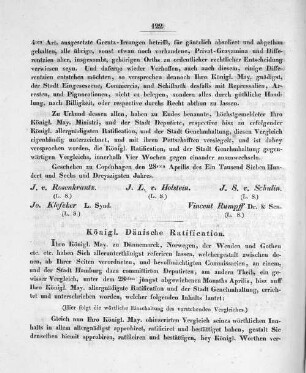 422
4ten Art. ausgesetzte Grentz-Irrungen betrifft, für gäntzlich absolviret und abgethan
gehalten, alle übrige, sonst etwan noch vorhandene, Privat-Gravamina und Differentzien
aber, insgesambt, gehörigen Orths zu ordentlicher rechtlicher Entscheidung
verwiesen seyn. Und dafern wieder Verhoffen, auch nach dieser Zeit, einige Differentzien
entstehen möchten, so versprechen dennoch Ihro Königl. May. gnädigst,
der Stadt Eingesessene, Commercia, und Schiffarth desfalls mit Repressalien, Arresten,
und Pignorationen, nicht zu belegen, sondern alles durch gütliche Handlung,
nach Billigkeit, oder respective durchs Recht abthun zu lassen.
Zu Urkund dessen allen, haben zu benante, höchstgemeldter Ihro Königl.
May. Ministri und der Stadt Deputirte, respective bis zu erfolgender
Königl. allergnädigsten Ratification, und der Stadt Genehmhaltung, diesen Vergleich
eigenhändig unterschrieben, und mit ihren angebohrnen Pittschafften bedrucket,
und sollen die Königl. Ratification, und der Stadt Genehmhaltung, gegenwärtigen
Vergleichs, innerhalb vier Wochen gegen einander ausgewechselt werden.
Geschehen zu Copenhagen, den 28sten Aprilis des Ein Tausend Sieben Hundert
und Sechs und Dreyzigsten Jahres.
J. v. Rosenkrantz. J. L. v. Holstein. J. S. v. Schulin.
(L. S.) (L. S.) (L. S.)
Jo. Klefeker L. Synd. Vincent Rumpff Dr. & Sen.
(L. S.) (L. S.)
Königl. Dänische Ratification.
Ihro Königl. May. zu Dännemarck, Norwegen, der Wenden und Gothen
etc. etc. etc. haben Sich allerunterthänigst referiren lassen, welchergestalt zwischen denen,
ab Ihrer Seiten verordneten, und bevollmächtigten Commissarien, an einem,
und der Stadt Hamburg dazu committirten Deputirten, am andern Theile, ein gewisser
Vergleich, unter dem 28sten jüngst abgewichenen Monaths Aprilis, bis auf
Ihro Königl. May. allergnädigste Ratification und der Stadt Genehmhaltung, errichtet
und geschlossen worden, welcher folgenden Inhalts lautet:
(Hier folgt die wörtliche Einschaltung des vorstehenden Vergleiches.)
Gleich nun Ihro Königl. May. obinserirten Vergleich seines wörtlichen Inhalts
in allem allergnädigst approbiret, ratificiret und bestätiget haben, gestalt Sie
denselben hiemit approbiren, ratificiren und bestätigen, bey Königl. Worthen ver-